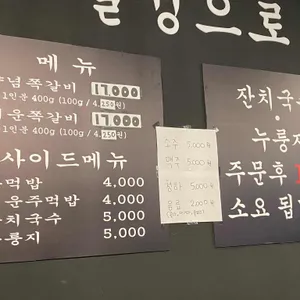 열정으로
메뉴
념쪽갈비 17,000
1인분 400g (100g / 4,250원)
운쪽갈비 17,000
1인분 400g (100g / 4,250원)
사이드메뉴
먹밥 4,000
운주먹밥 4,000
치국수 5,000
룽지 5,000
소주 5,000원
맥주 5,000원
청하 5,000원
음료 2,000원
잔치국
누룽지
주문후 1
소요 됩